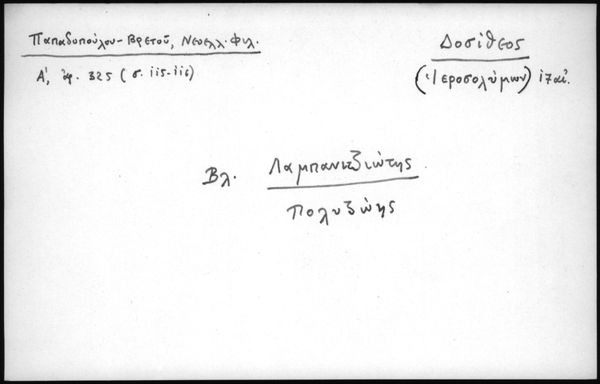 Παπαδοπούλου-Βρετοῦ, Νεοελλ. Φιλ.
Α', ἀρ. 325 (σ. 115-116)
Δοσίθεος
(Ἱεροσολύμων) 17 αἰ.
Βλ. Λαμπανιτζιώτης
Πολυζώης